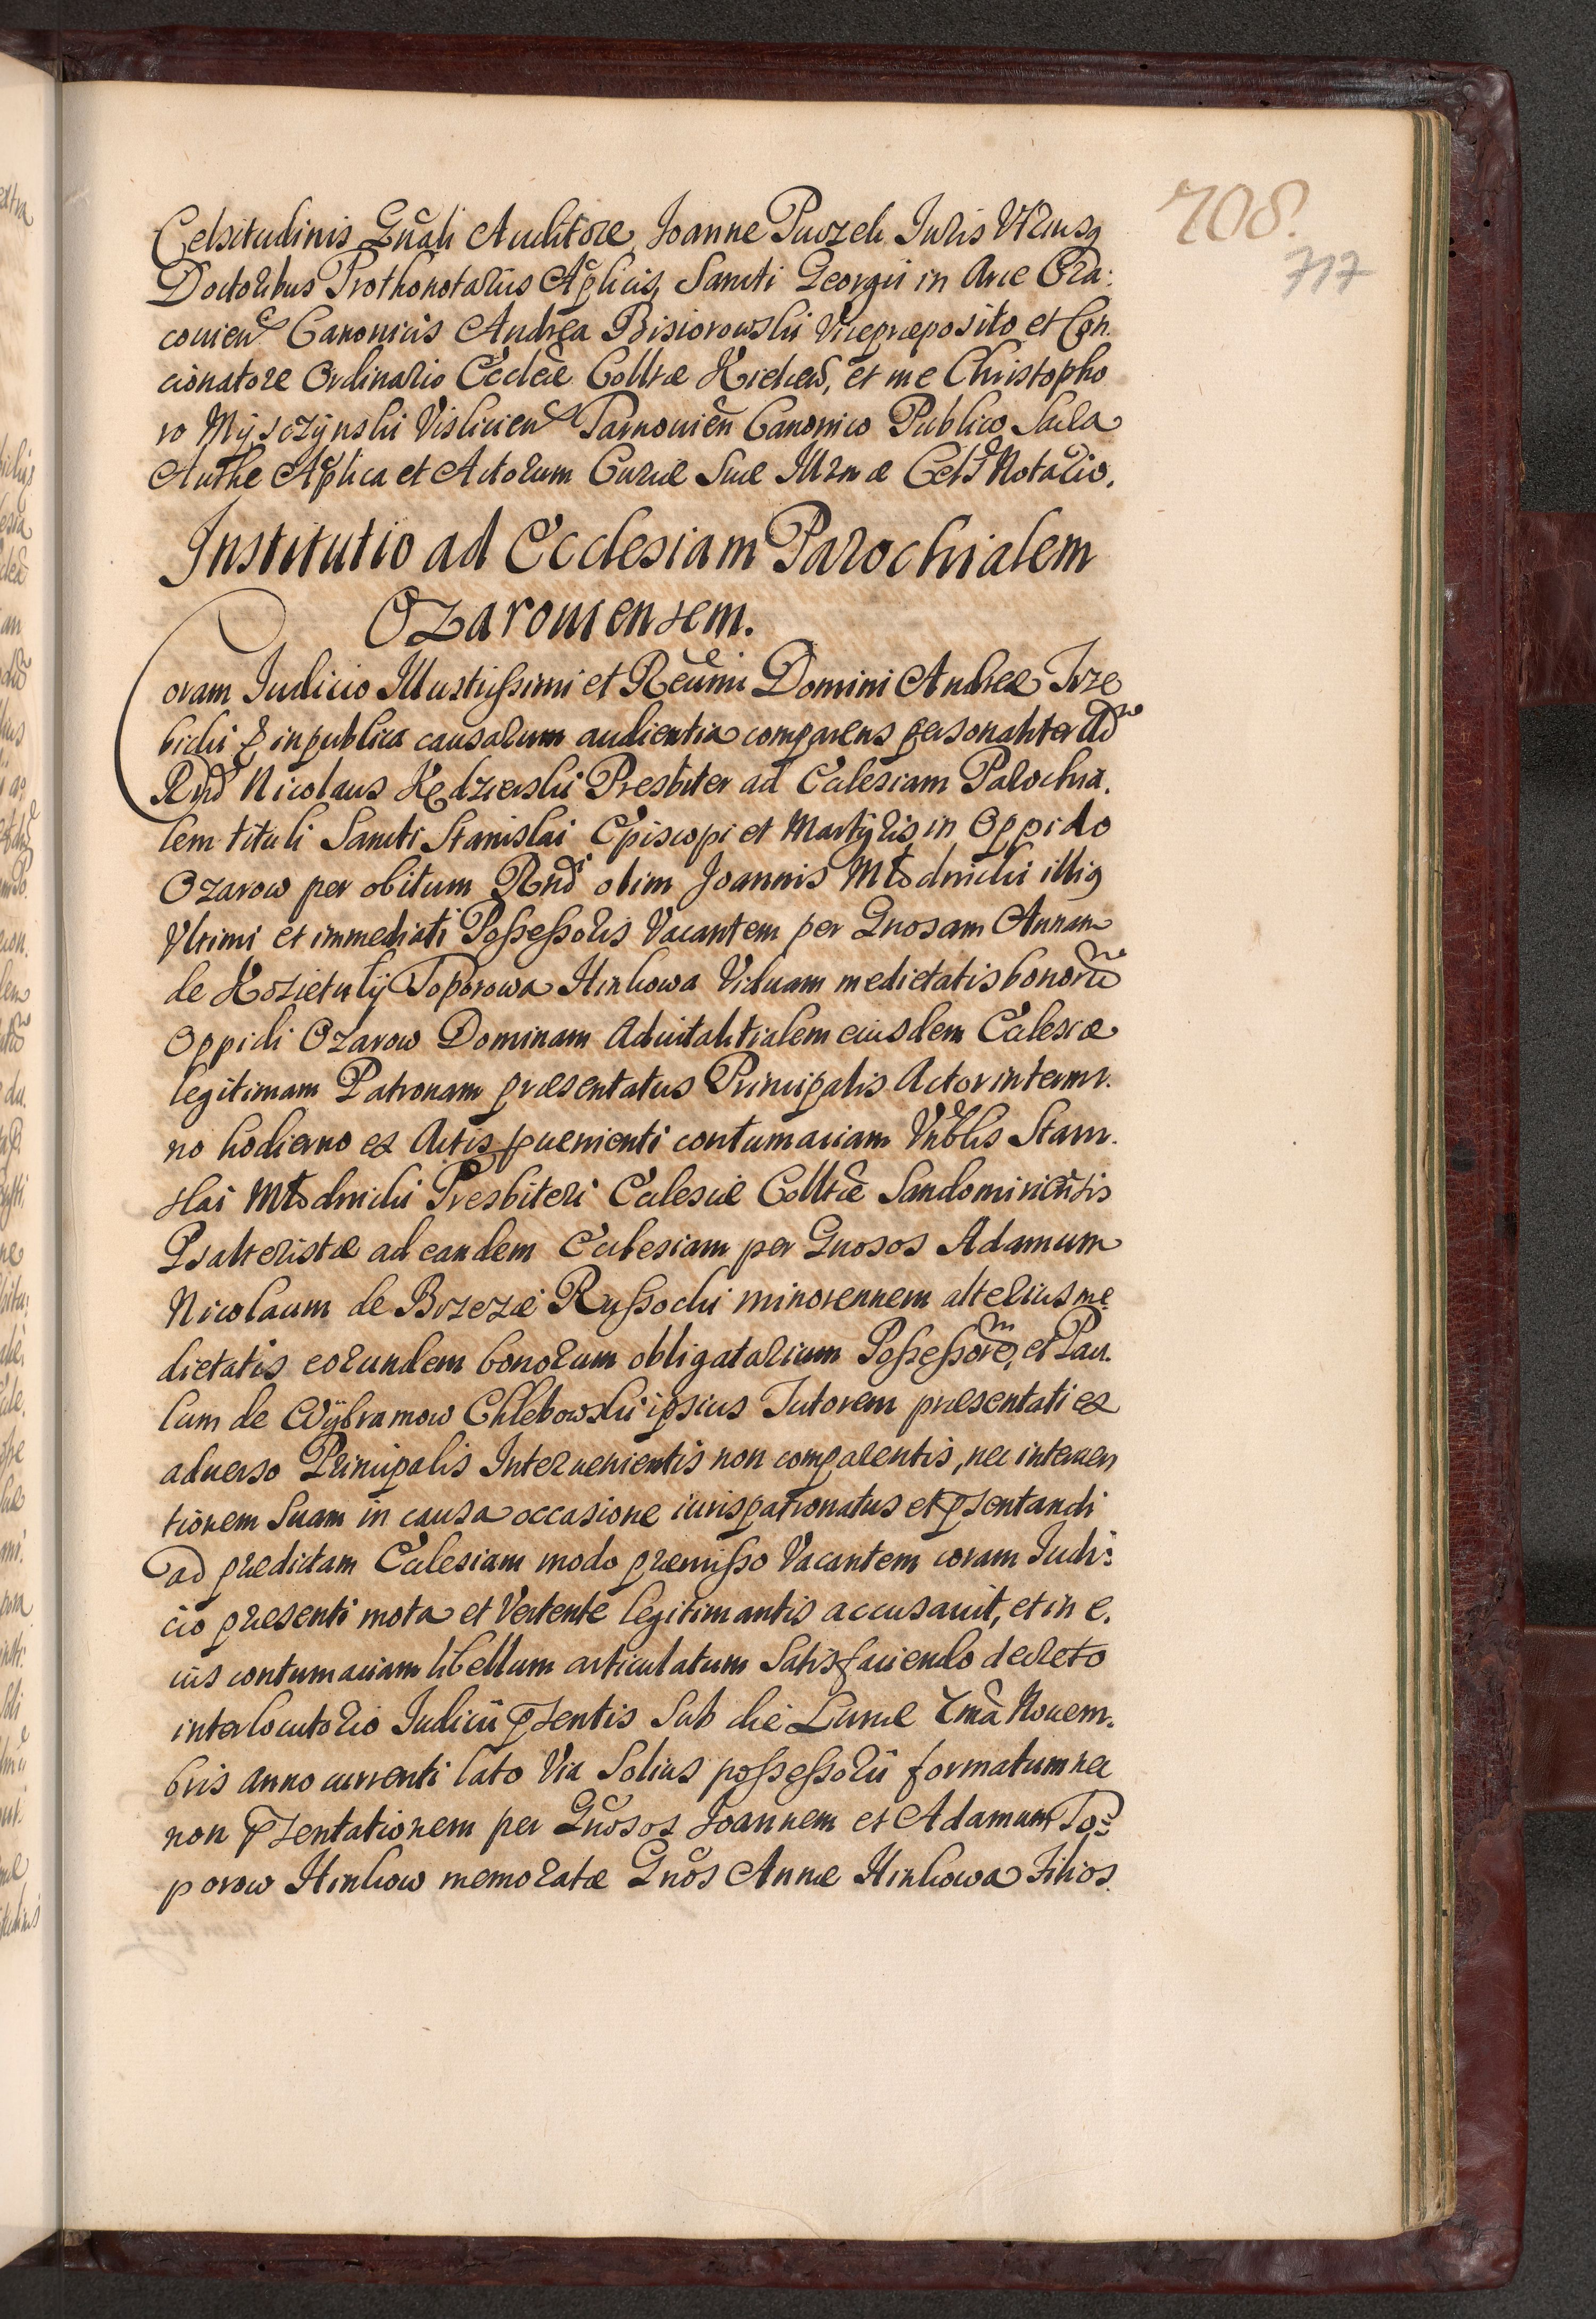 708.
717
Celsitudinis Gnali Auditore, Joanne Puczek Juris Utriusq
Doctoribus Prothonotariis Aplicis, Sancti Georgii in Arce Cra:
couien Canonicis Andrea Bisiorowski Vicepraeposito et Con
cionatore Ordinario Eccleae Colltae Kielcen, et me Christopho
ro Myszczynski Vislicien Tarnouien Canonico Publico Sacra
Authe Aplica et Actorum Curiae Suae Illrmae Cels Notario.
Institutio ad Ecclesiam Parochialem
Ozarouiensem.
Coram Judicio Illustrissimi et Reuemi Domini Andreae Trze
bicki & in publica causarum audientia comparens personaliter Ad
Rnd Nicolaus Kędzierski Presbiter ad Ecclesiam Parochia.
lem tituli Sancti Stanislai Episcopi et Martyris in Oppido
Ozarow per obitum Rndi olim Joannis Młodnicki illig
Vltimi et immediati Possessoris Vacantem per Gnosam Annam
de Kozietuly Toporowa Hinkowa Viduam medietatis bonoru
Oppidi Ozarow Dominam Aduitalitialem eiusdem Ecclesiae
legitimam Patronam praesentatus Principalis Actor in termi.
no hodierno ex Actis pueniente contumaciam Vnblis Stani.
slai Młodnicki Presbiteri Ecclesiae Colltae Sandomiriensis
Psalteristae ad eandem Ecclesiam per Gnosos Adamum
Nicolaum de Brzezie Russocki minorennem alterius me
dietatis eorundem bonorum obligatarium Possessore, et Pau.
lum de Wybramow Chlebowski ipsius Tutorem praesentati ex
aduerso Principalis Interuenientis non comparentis, nec interuen
tionem Suam in causa occasione iurispatronatus et psentandi
ad praedictam Ecclesiam modo praemisso Vacantem coram Judi:
cio praesenti mota et Vertente legitimantis accusauit, et in e.
ius contumaciam libellum articulatum Satisfaciendo decreto
interlocutorio Judicii psentis Sub die Lunae 7ma Nouem.
bris anno currenti lato Via Solius possessorii formatum nec
non psentationem per Gnosos Joannem et Adamum To:
porow Hinkow memoratae Gnos Annae Hinkowa Filios